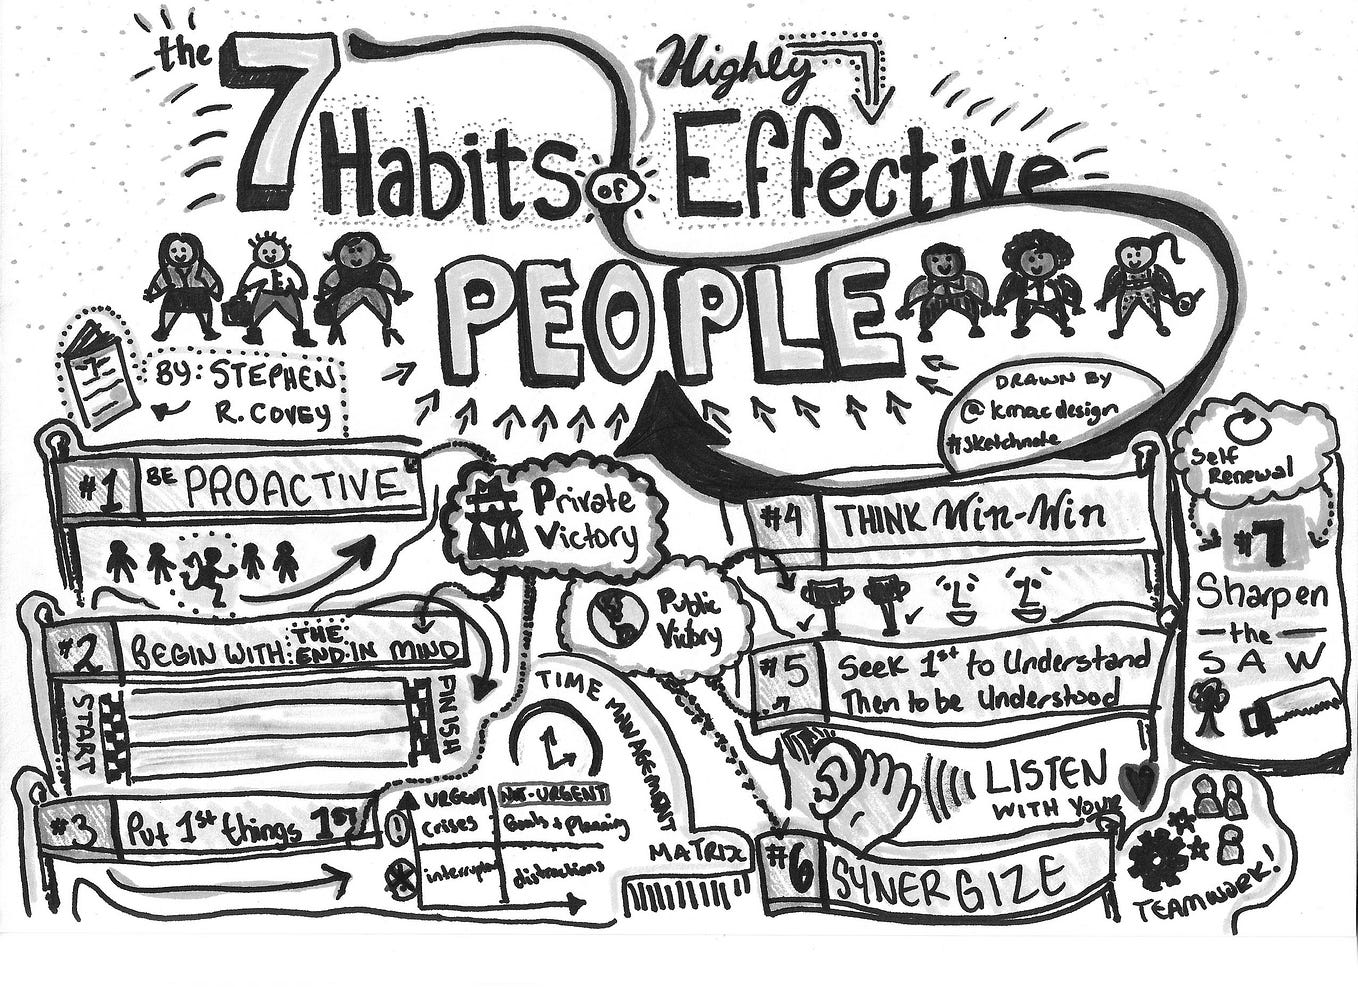 the 7 Habits of Highly Effective
PEOPLE
BY: STEPHEN
R. COVEY
DRAWN BY
@kmacdesign
#sketchnote
#1 BE PROACTIVE
Private
Victory
#2 BEGIN WITH THE END IN MIND
START
FINISH
#3 Put 1st things 1st
Public
Victory
TIME MANAGEMENT
MATRIX
URGENT
NOT-URGENT
!
crises
Goals + Planning
distractions
#4 THINK Win-Win
#5 Seek 1st to Understand
Then to be Understood
LISTEN
WITH YOUR
#6 SYNERGIZE
TEAMWORK!
Self
Renewal
#7
Sharpen
the
SAW